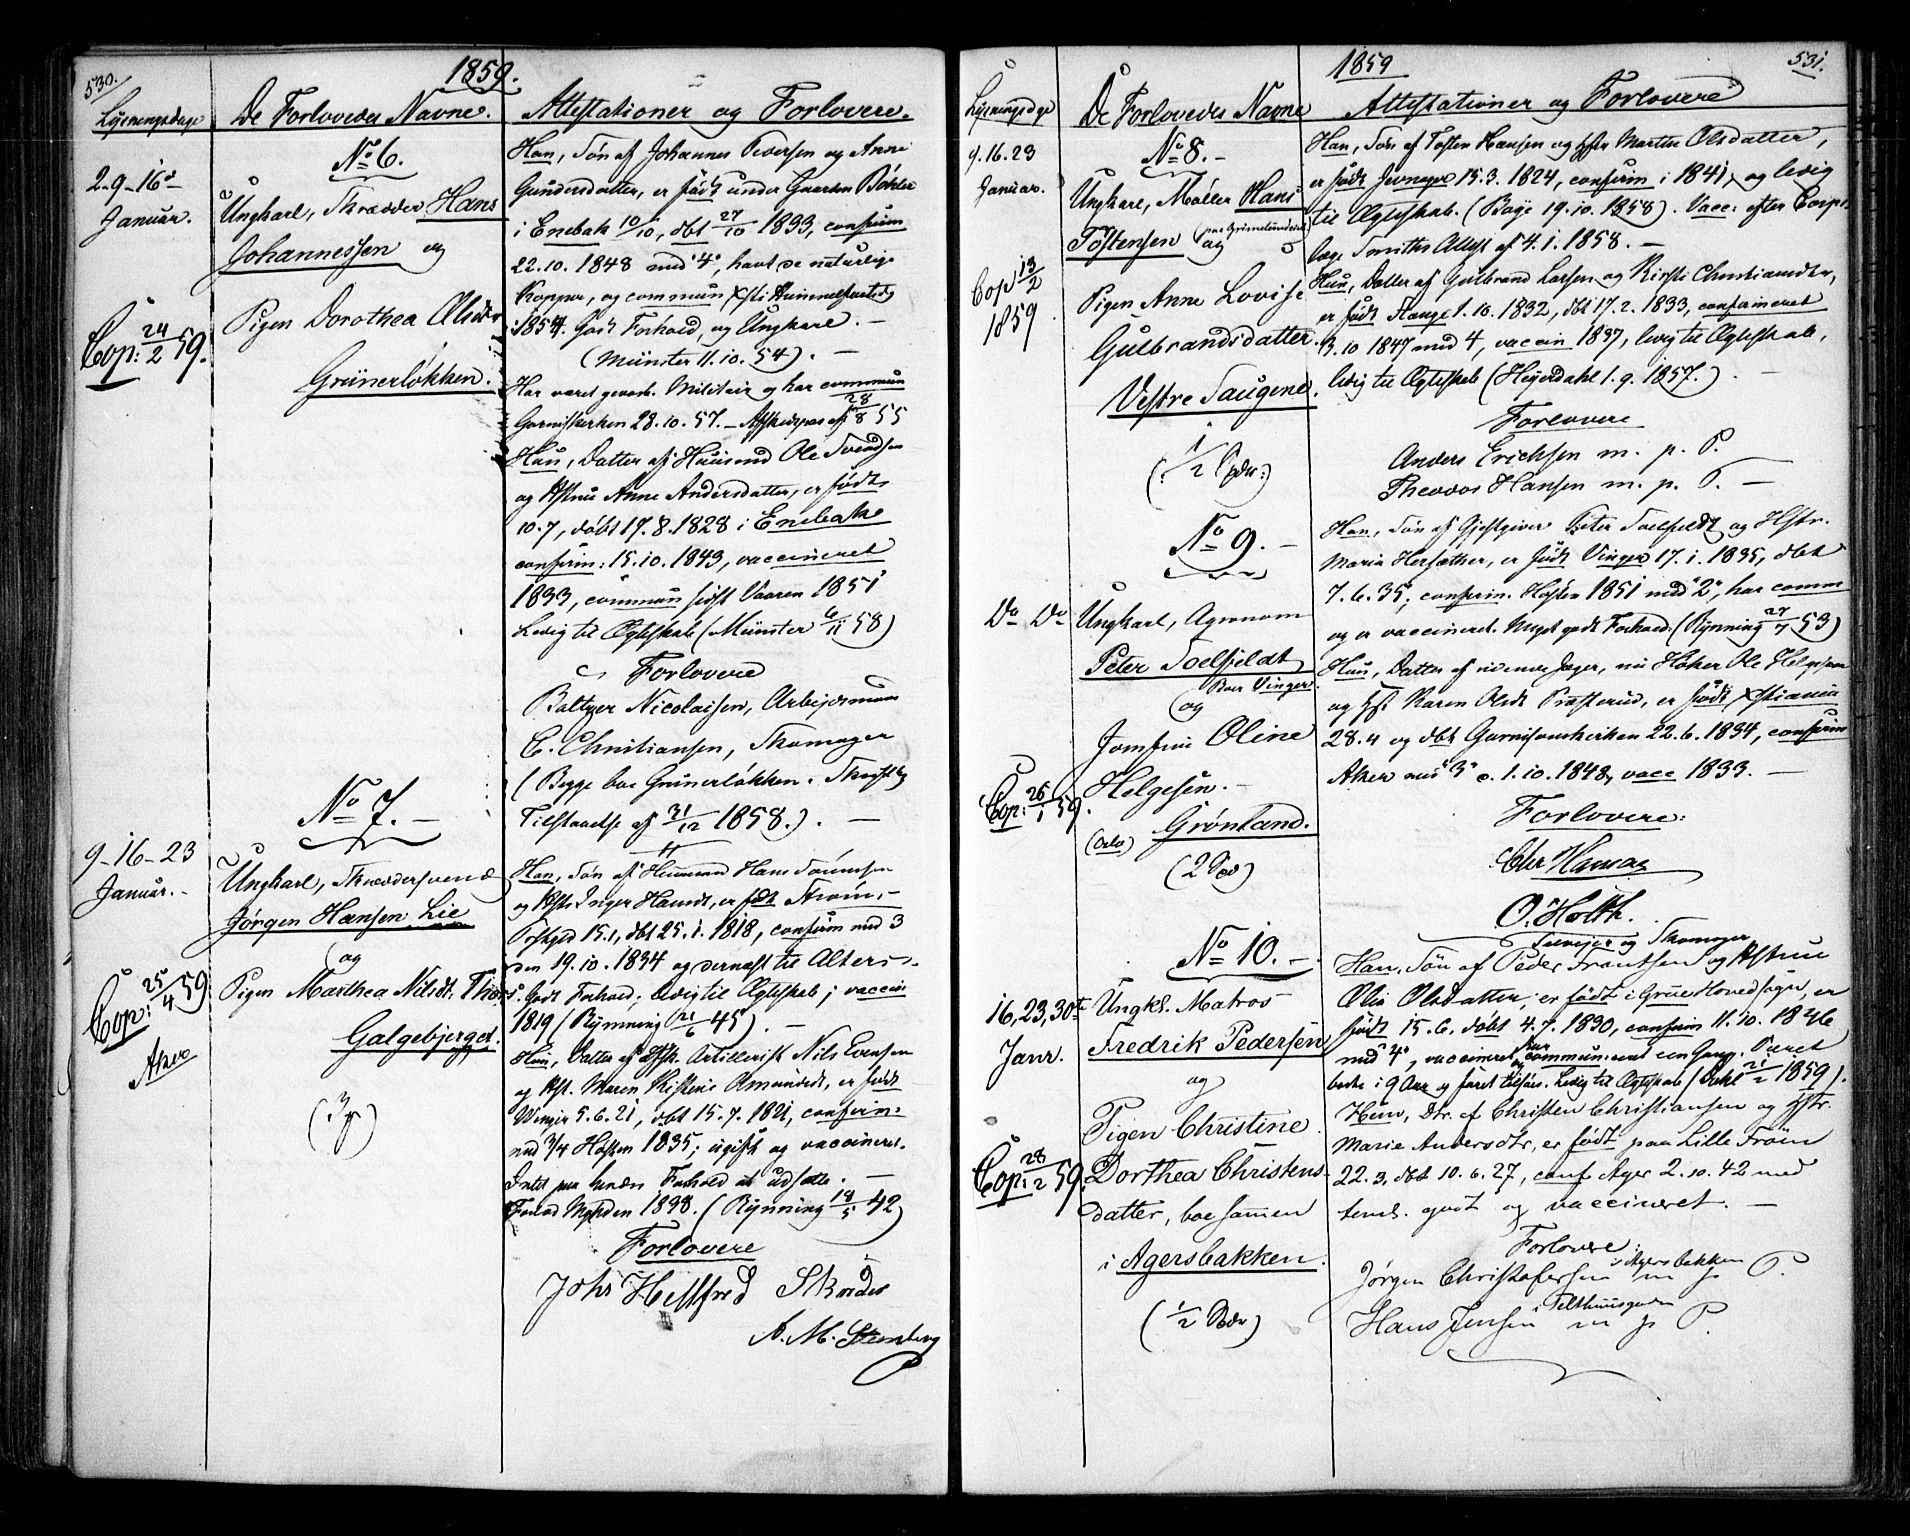 530.
1859.
Lysningsdage
De Forlovedes Navne.
Attestationer og Forlovere.
No 6.
2-9-16de
Januar.
Ungkarl, Skrædder Hans
Johannessen og
Pigen Dorothea Olsdtr
Grünerløkken.
Cop: 24/2 59.
Han, Søn af Johannes Pedersen og Anne
Gundersdatter, er født under Gaarden Böhler
i Enebak 10/10, dbt 27/10 1833, confirm
22.10. 1848 med "4", havt de naturlige
Kopper, og commun
1854. Godt Forhold, og Ungkarl. —
(Münster 11.10.54). —
Har været gevorb. Militair og har commun
Garniskirken 28.10.57. — Afskedspas af 28/8 55
Hun, Datter af Huusmd Ole Svendsen
og Hstru Anne Andersdatter, er født
10.7, døbt 17.8.1828 i Enebak
confirm: 15.10.1843, vaccineret
1833, commun sidst Vaaren 1851
Ledig til Ægteskab (Münster 6/11 58)
Forlovere
Baltzer Nicolaisen, Arbejdsmand
C. Christiansen, Skomager
(Begge boe Grünerløkken. Skriftlig
Tilstaaelse af 31/12 1858.). —
No 7. —
9-16-23
Januar. -
Ungkarl, Skræddersvend
Jørgen Hansen Lie
og
Pigen Marthea Nilsdt. Thors
Galgebjerget.
Cop: 25/4 59
Aker
Han, Søn af Huusmand Hans
og Hst. Inger Hansdt, er født Ströms
15.1, dbt 25.1.1818, confirm med 3
den 19.10.1834 og dernæst til Alters.
Godt Forhold; ledig til Ægteskab; vaccin
1819 (Rynning 21/6 45). —
Hun, Datter af Artillerist Nils Evensen
og Hst. Maren Kistine Amundsdt, er født
Vinger 5.6.21, dbt 15.7.1821, confirm:
med 3/4 Høsten 1835; ugift og vaccineret.
Intet paa hendes Forhold at udsætte. —
1838. (Rynning 18/5 42)
Forlovere
Johs Hellfred Skorder
A. M. Stenberg
531.
1859
Lysningsdge
De Forlovedes Navne
Attestationer og Forlovere
No 8. —
9.16.23
Januar.
Ungkarl, Møller Hans
Tostensen (paa Grimelunderet)
og
Pigen Anne Lovise
Gulbrandsdatter.
Vestre Taugene.
(: 1/2 Spdr:)
Cop 13/2
1859
Han, Søn af Tosten Hansen og Hstr Marthe Olsdatter,
er født Jevnager 15.3.1824, confirm i 1841, og ledig
til Ægteskab. (Baye 19.10.1858). Vacc: efter Corps
læge Smiths Attest af 4.1.1858. —
Hun, Datter af Gulbrand Larsen og Kirsti Christiansdtr,
er født Stange 1.10.1832, dbt 17.2.1833, confirmeret
3.10 1847 med 4, vaccin 1837, ledig til Ægteskab,
ledig til Ægteskab (Heyerdahl 1.9.1857.)
Forlovere
Anders Erichsen m. p. P.
Theodor Hansen m. p. P. —
No 9. —
Do Do
Ungkarl, Agronom
Peter Toelfeldt
Boer Vinger.
og
Jomfru Oline
Helgesen. -
Grønland.
(Oslo)
Cop: 26/1 59.
Han, Søn af Gjestgiver Peter Toelfeldt og Hstr.
Maria Hersæther, er født Vinger 17.1.1835, dbt
7.6.35; confirm. Høsten 1851 med "2", har comm
og er vaccineret. Meget godt Forhold. (Rynning 27/7 53)
Hun, Datter af Jæger, nu Høker Ole Helgesen
og Hst Karen Olsdt Præsterud, er født Xstiania
28.4 og dbt Garnisonskirken 22.6.1834, confirm
Aker med "3" d. 1.10.1848, vacc 1833. —
Forlovere:
Chr Hansen
O. Holth.
No 10. —
16, 23, 30te
Janr.
Ungkl. Matros
Fredrik Pedersen
og
Pigen Christine
Dorthea Christens-
datter, boe sammen
i Agersbakken.
(1/2 Spdr)
Cop: 28/2 59.
Han, Søn af Peder Frantsen og Hstru
Olia Olsdatter, er født i Grue Hovedsogn, er
født 15.6. døbt 4.7.1830, confirm 11.10.1846
med "4", vaccineret, har commun: een Gang. Været
borte i 9 Aar og faret tilsøes. Ledig til Ægteskab (Dahl 21/2 1859).
Hun, Dtr. af Christen Christiansen og Hstr.
Marie Andersdtr, er født paa Lille Frøen
22.3, dbt 10.6.27, conf Ager 2.10.42 med
godt og vaccineret. —
Forlovere:
Jørgen Christofersen i Agersbakken m p P.
Hans Jensen i Telthuusgaden m p P.